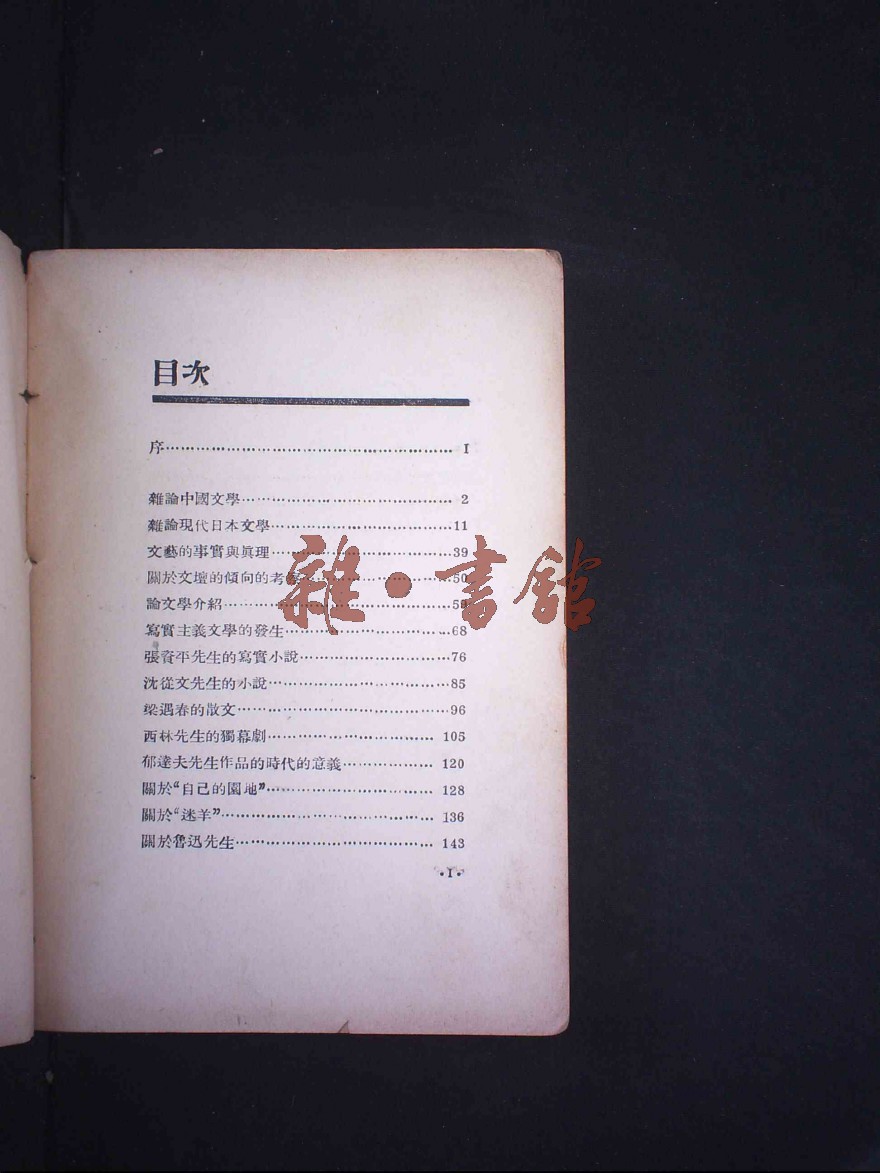 目次
序 I
雜論中國文學 2
雜論現代日本文學 11
文藝的事實與眞理 39
關於文壇的傾向的考 50
論文學介紹 59
寫實主義文學的發生 68
張資平先生的寫實小說 76
沈從文先生的小說 85
梁遇春的散文 96
西林先生的獨幕劇 105
郁達夫先生作品的時代的意義 120
關於“自己的園地” 128
關於“迷羊” 136
關於魯迅先生 143
·I·
雜·書館